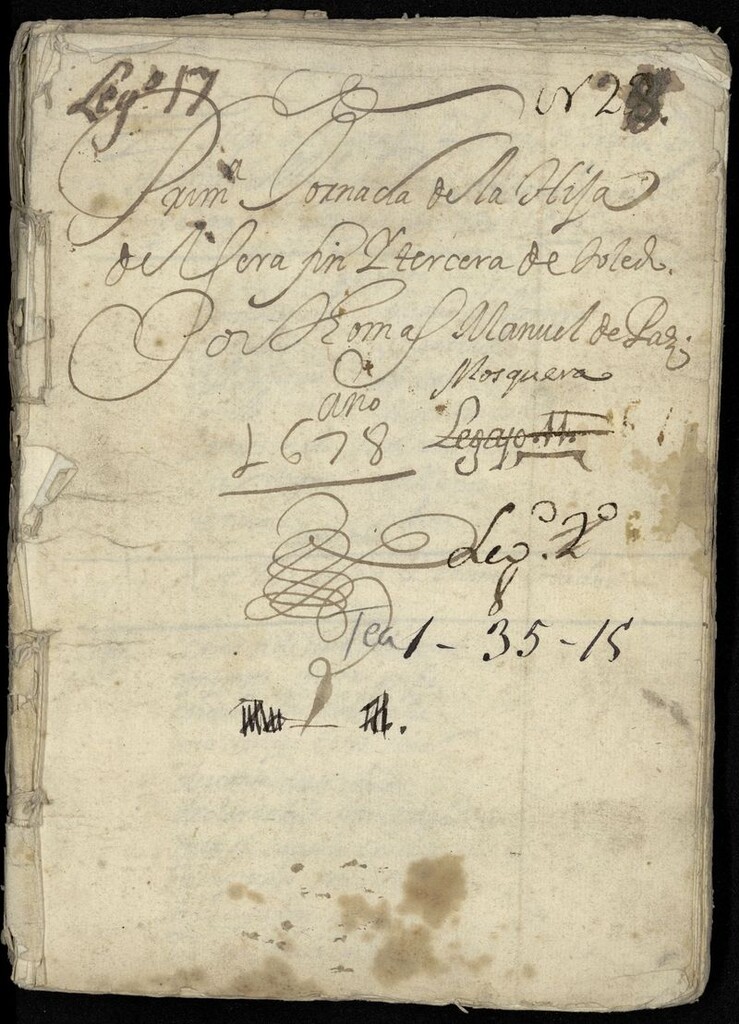 Leg.º 17
N 28.
Prim.ª Jornada de la Hija
de Mera sin Y tercera de toled.
Por Thomas Manuel de Paz;
Mosquera
año
1678
Legajo. 11.
Leg.º 2º
8
Tea 1 - 35 - 15